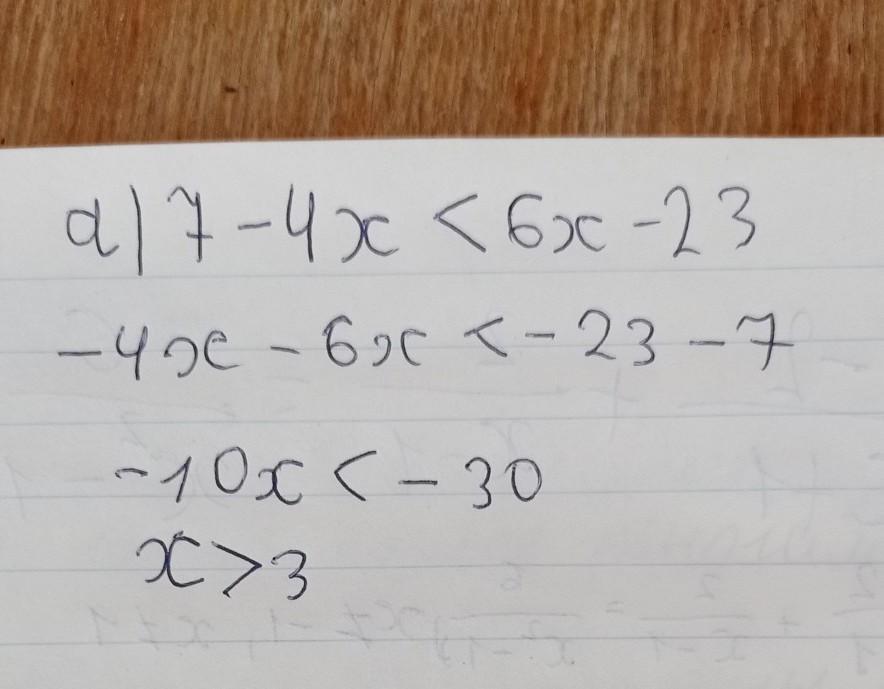 a) 7 - 4x < 6x - 23
-4x - 6x < -23 - 7
-10x < -30
x > 3